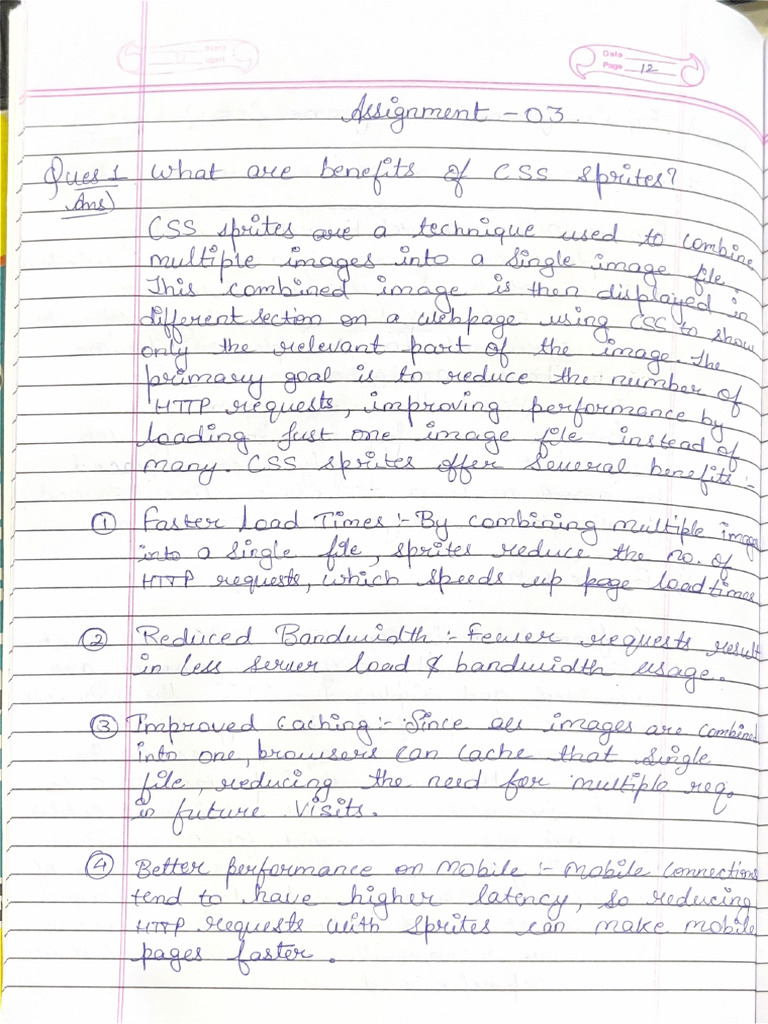 Date
Page 12
Assignment - 03.
Ques 1 What are benefits of CSS sprites?
Ans)
CSS sprites are a technique used to combine
multiple images into a single image file.
This combined image is then displayed in
different section on a webpage using CSS to show
only the relevant part of the image. The
primary goal is to reduce the number of
HTTP requests, improving performance by
loading just one image file instead of
many. CSS sprites offer several benefits :-
① Faster Load Times :- By combining multiple image
into a single file, sprites reduce the no. of
HTTP requests, which speeds up page load times
② Reduced Bandwidth :- Fewer requests result
in less server load & bandwidth usage.
③ Improved Caching :- Since all images are combined
into one, browsers can cache that single
file, reducing the need for multiple req.
in future visits.
④ Better performance on mobile :- mobile connections
tend to have higher latency, so reducing
HTTP requests with sprites can make mobile
pages faster.